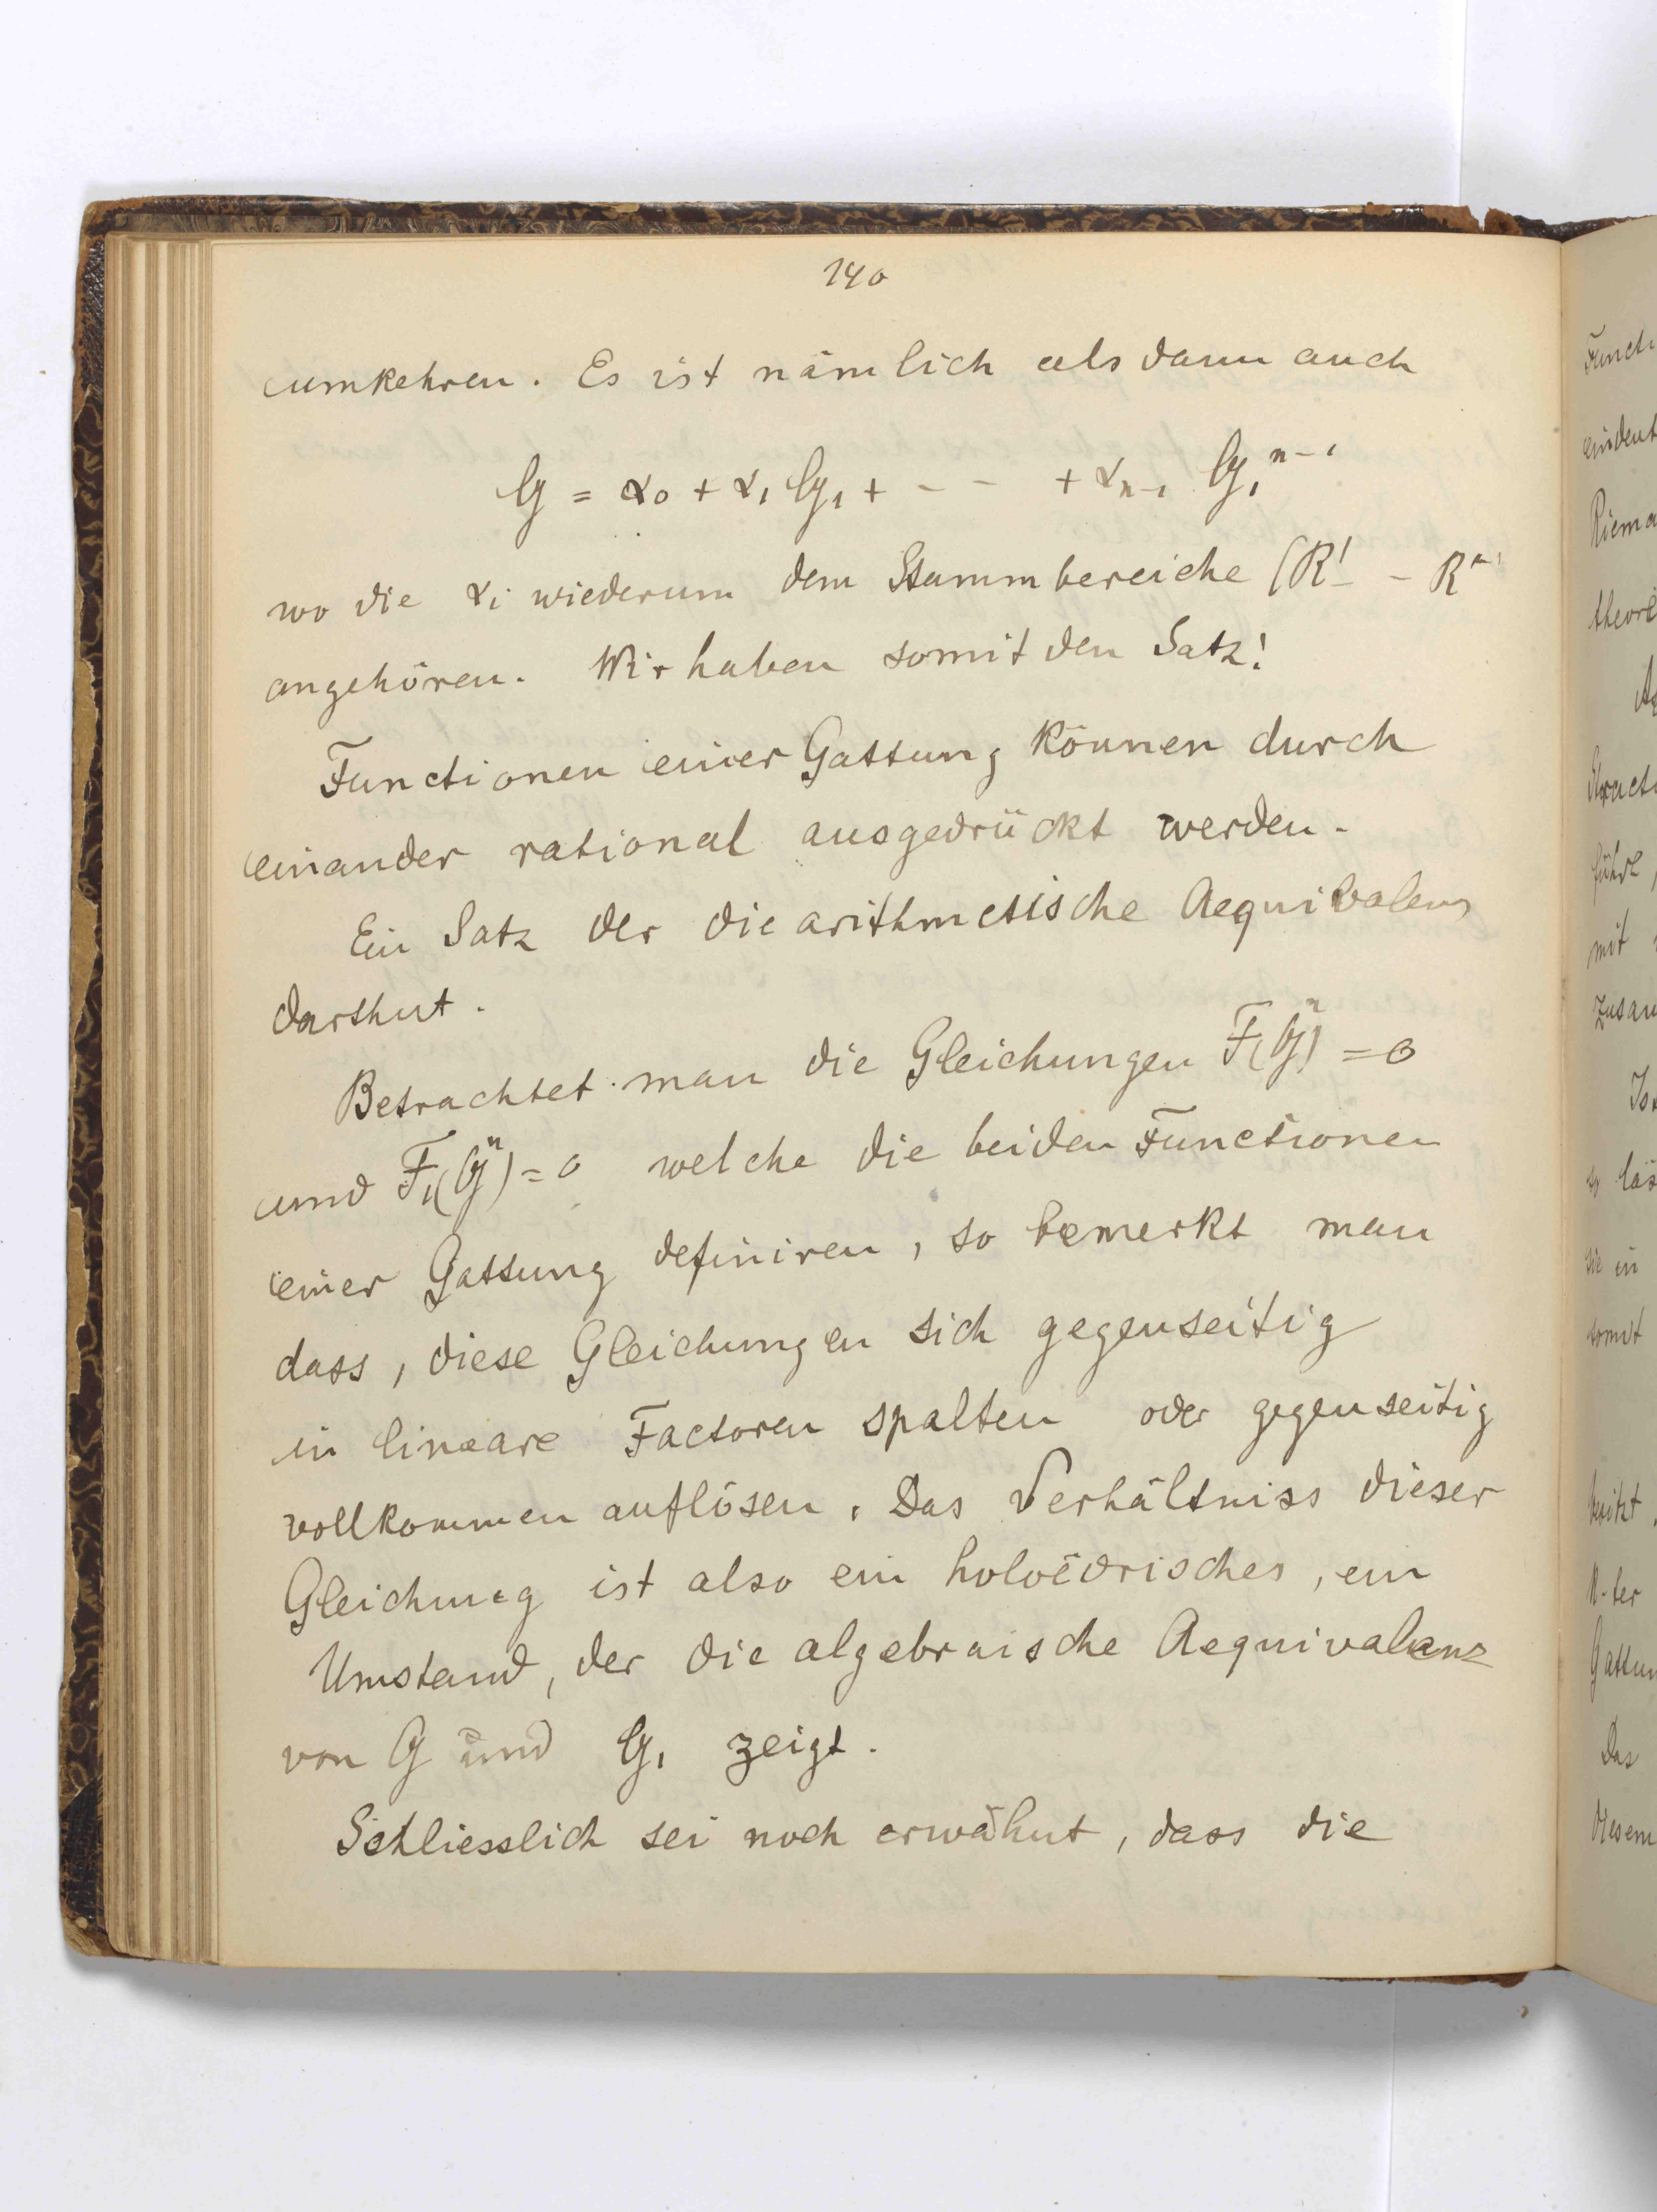 140
umkehren. Es ist nämlich alsdann auch
G = α₀ + α₁ G₁ + - - + αₙ₋₁ G₁ⁿ⁻¹
wo die αi wiederum dem Stammbereiche (R' - - R
angehören. Wir haben somit den Satz:
Functionen einer Gattung können durch
einander rational ausgedrückt werden.
Ein Satz der die arithmetische Aequivalenz
darthut.
Betrachtet man die Gleichungen F(G) = 0
und F₁(G) = 0 welche die beiden Functionen
einer Gattung definiren, so bemerkt man
dass, diese Gleichungen sich gegenseitig
in lineare Factoren spalten oder gegenseitig
vollkommen auflösen. Das Verhältniss dieser
Gleichung ist also ein holoëdrisches, ein
Umstand, der die algebraische Aequivalenz
von G und G₁ zeigt.
Schliesslich sei noch erwähnt, dass die
Functi
eindeut
Riema
theore
führe,
mit
Zusam
sie in
somit
besitzt.
n-ter
Gattun
Das
diesem